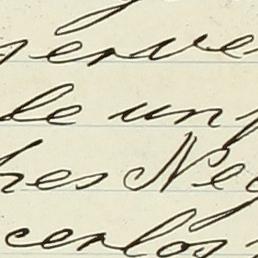 erve
de un
hes Neg
cerlos